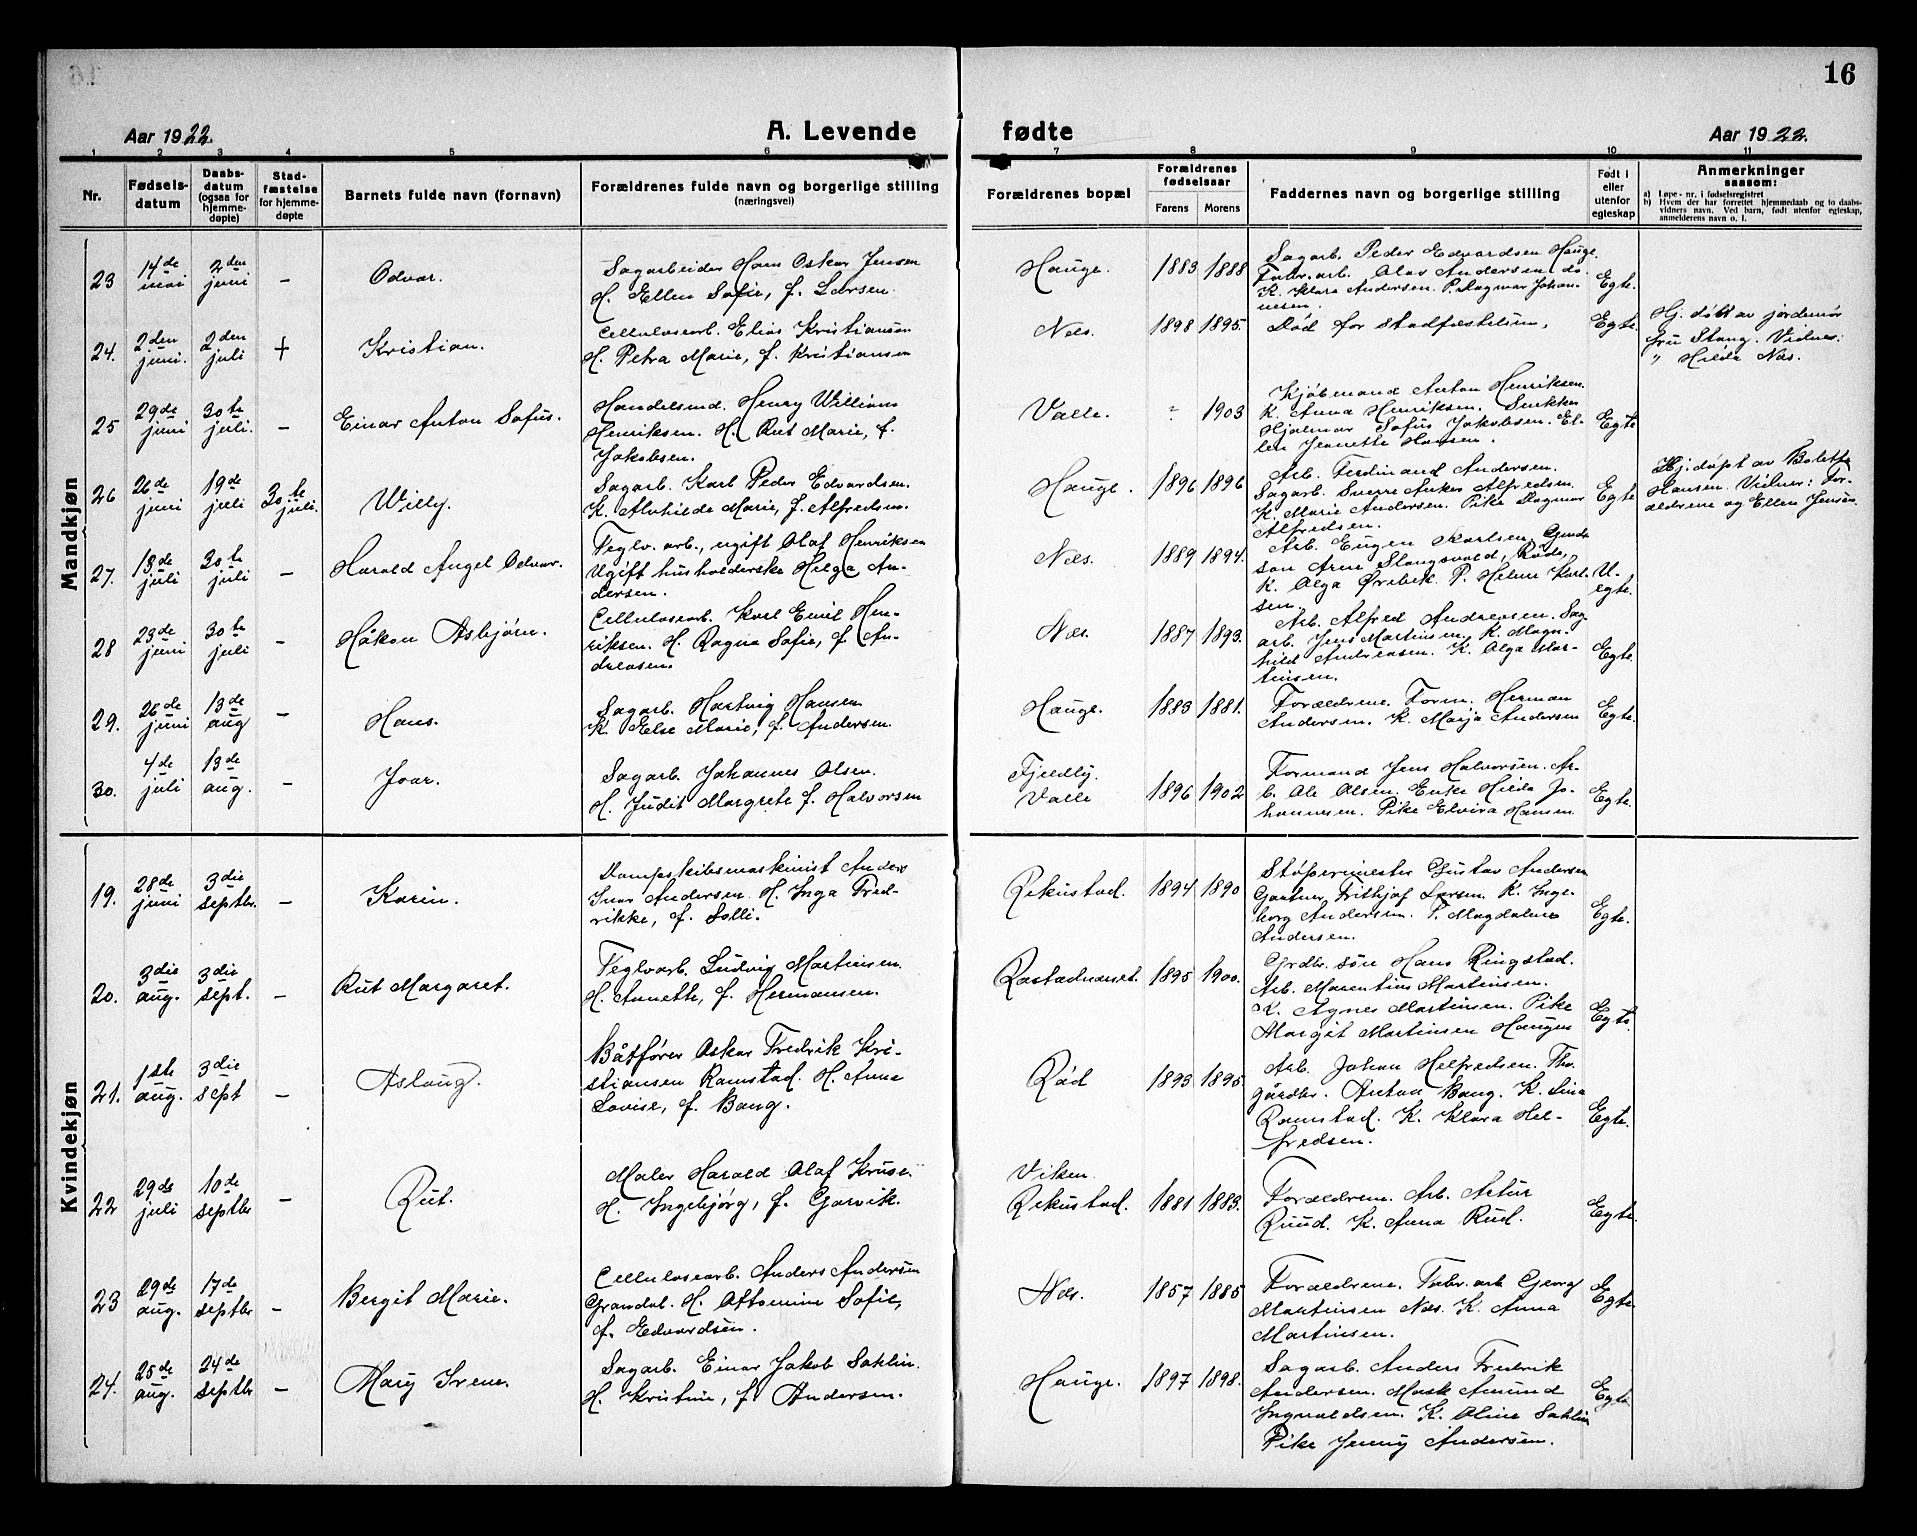 16
Aar 1922.
A. Levende
fødte
Aar 1922.
1 2 3 4 5 6 7 8 9 10 11
Nr.
Fødsels-
datum
Daabs-
datum
(ogsaa for
hjemme-
døpte)
Stad-
fæstelse
for hjemme-
døpte
Barnets fulde navn (fornavn)
Forældrenes fulde navn og borgerlige stilling
(næringsvei)
Forældrenes bopæl
Forældrenes
fødselsaar
Farens Morens
Faddernes navn og borgerlige stilling
Født i
eller
utenfor
egteskap
Anmerkninger
saasom:
a) Løpe-nr. i fødselsregistret
b) Hvem der har forrettet hjemmedaab og to daabs-
vidners navn. Ved barn, født utenfor egteskap,
anmelderens navn o. l.
Mandkjøn
23
14de
mai
2den
juni
-
Odvar.
Sagarbeider Hans Oskar Jensen
H. Ellen Sofie, f. Larsen.
Hauge.
1883 1888
Sagarb. Peder Edvardsen Hauge.
Fabr. arb. Olav Andersen do.
K. Klara Andersen. P. Dagmar Johan-
nesen.
Egte.
24.
2den
juni.
2den
juli
+
Kristian.
Cellulosearb. Elias Kristiansen
H. Petra Marie, f. Kristiansen
Nes.
1898 1895.
Død før stadfæstelsen,
Egte.
Hj. døbt av jordemor
fru Stang. Vidner:
" Hilda Næs.
25
29de
juni
30te
juli.
-
Einar Anton Sofus.
Handelsmd. Henry William
Henriksen. H. Rut Marie, f.
Jakobsen.
Valle.
1903
Kjøbmand Anton Henriksen.
K. Anna Henriksen. Snekker
Hjalmar Sofus Jakobsen. El-
len Jeanette Hansen.
Egte
26
26de
juni
19de
juli
30te
juli.
Willy.
Sagarb. Karl Peder Edvardsen.
K. Alvhilde Marie, f. Alfredsen.
Hauge.
1896 1896
Arb. Ferdinand Andersen.
Sagarb. Sverre Anker Alfredsen.
K. Marie Andersen. Pike Dagmar
Alfredsen.
Egte
Hj. døpt av Bolette
Hansen. Vidner: For-
ældrene og Ellen Jensen.
27.
13de
juli
30te
juli
-
Harald Angel Odvar.
Teglv. arb., ugift Olaf Henriksen
Ugift husholderske Helga An-
dersen.
Nes.
1889 1894.
Arb. Eugen Karlsen, Grdr.
søn Arne Slangsvold, Råde,
K. Olga Ørebek P. Helene Karl-
sen.
U-
egte.
28
23de
juni
30te
juli
-
Håkon Asbjørn.
Cellulosearb. Karl Emil Hen-
riksen. H. Ragna Sofie, f. An-
dreasen
Nes.
1887 1893.
Arb. Alfred Andreasen. Sag
arb. Jens Martinsen, K. Magn-
hild Andreasen. K. Olga Mar-
tinsen.
Egte.
29.
26de
juni
13de
aug
-
Hans.
Sagarb. Hartvig Hansen
K. Else Marie, f. Andersen
Hauge.
1883 1881.
Forældrene. Form. Herman
Andersen. K. Marja Andersen
Egte.
30.
4de
juli
13de
aug.
-
Ivar.
Sagarb. Johannes Olsen.
H. Judit Margrete f. Halvorsen
Fjeldby.
Valle
1896 1902
Formand Jens Halvorsen. Ar-
b. Ole Olsen. Enke Hilda Jo-
hannesen. Pike Elvira Hansen
Egte.
Kvindekjøn
19.
28de
juni
3die
septbr.
-
Karin.
Dampskibsmaskinist Anders
Ivar Andersen. H. Inga Fred-
rikke, f. Solli.
Rekustad.
1894 1890
Støpermester Gustav Andersen
Gartner Frithjof Larsen. K. Inge-
borg Andersen. P. Magdalene
Andersen.
Egte.
20.
3die
aug.
3die
sept.
-
Rut Margaret.
Teglvarb. Ludvig Martinsen.
H. Annette, f. Hermansen.
Rastadvannet.
1895 1900.
Grdbr. søn Hans Ringstad.
Arb. Marentius Martinsen.
K. Agnes Martinsen. Pike
Margit Martinsen Haugen
Egte.
21.
1ste
aug.
3die
sept
-
Aslaug.
Båtfører Oskar Fredrik Kri-
stiansen Ramstad. H. Anna
Lovise, f. Bang.
Rød
1893 1895.
Arb. Johan Helfredsen. Tho.
gårdbr. Anton Bang. K. Lina
Ramstad. K. Klara Hel-
fredsen.
Egte.
22
29de
juli
10de
septbr
-
Rut.
Maler Harald Olaf Kruse.
H. Ingebjørg, f. Garvik.
Viken.
Rekustad.
1881 1883.
Forældrene. Arb. Artur
Ruud. K. Anna Rud.
Egte.
23
29de
aug.
17de
septbr
-
Bergit Marie.
Cellulosearb. Anders Andersen
Grandal. H. Ottomine Sofie,
f. Edvardsen.
Nes.
1857 1885
Forældrene. Fabr. arb Georg
Martinsen Næs. K. Anna
Martinsen.
Egte.
24.
25de
aug.
24de
septbr
-
Mary Irene.
Sagarb. Einar Jakob Sahlin.
H. Kristine, f. Andersen.
Hauge.
1897 1898.
Sagarb. Anders Fredrik
Andersen. Mask Amund
Ingvaldsen. K. Oline Sahlin
Pike Jenny Andersen.
Egte